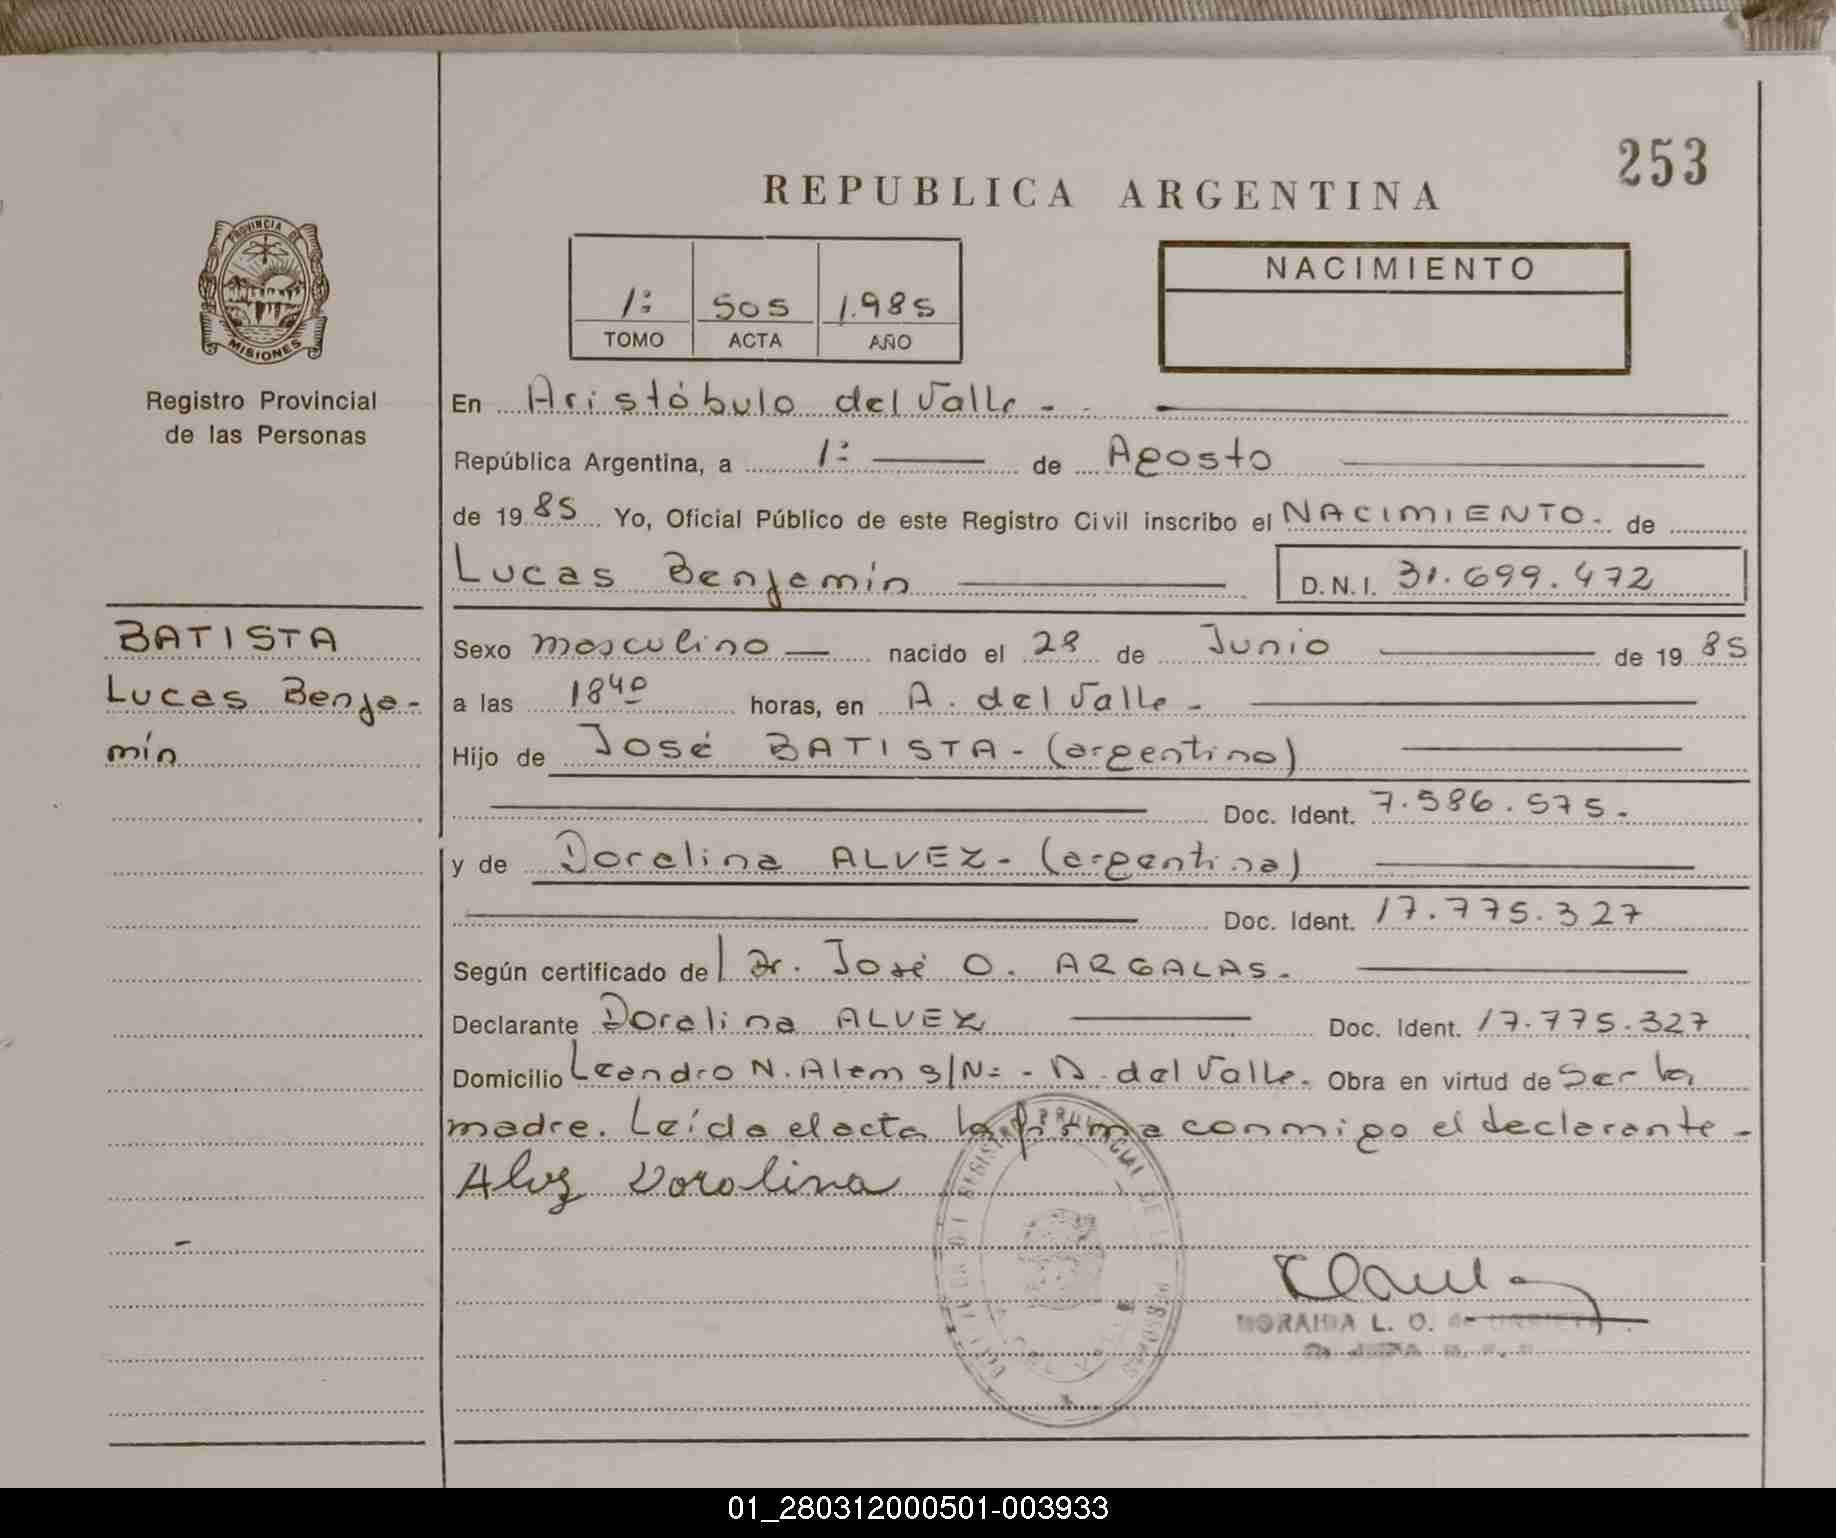 253
REPUBLICA ARGENTINA
PROVINCIA DE
MISIONES
Registro Provincial
de las Personas
1º 505 1.985
TOMO ACTA AÑO
NACIMIENTO
En Aristóbulo del Valle -
República Argentina, a 1º de Agosto
de 1985 Yo, Oficial Público de este Registro Civil inscribo el NACIMIENTO- de
Lucas Benjamín D.N.I. 31.699.472
BATISTA
Lucas Benja-
mín
Sexo masculino nacido el 28 de Junio de 1985
a las 18⁴⁰ horas, en A. del Valle -
Hijo de José BATISTA - (argentino)
Doc. Ident. 7.586.575.-
y de Doralina ALVEZ - (argentina)
Doc. Ident. 17.775.327
Según certificado del Dr. José O. ARGALAS.-
Declarante Doralina ALVEZ Doc. Ident. 17.775.327
Domicilio Leandro N. Alem S/Nº - A. del Valle. Obra en virtud de Ser la
madre. Leída el acta la firma conmigo el declarante-
Alvz Doralina
L. O. de
01_280312000501-003933